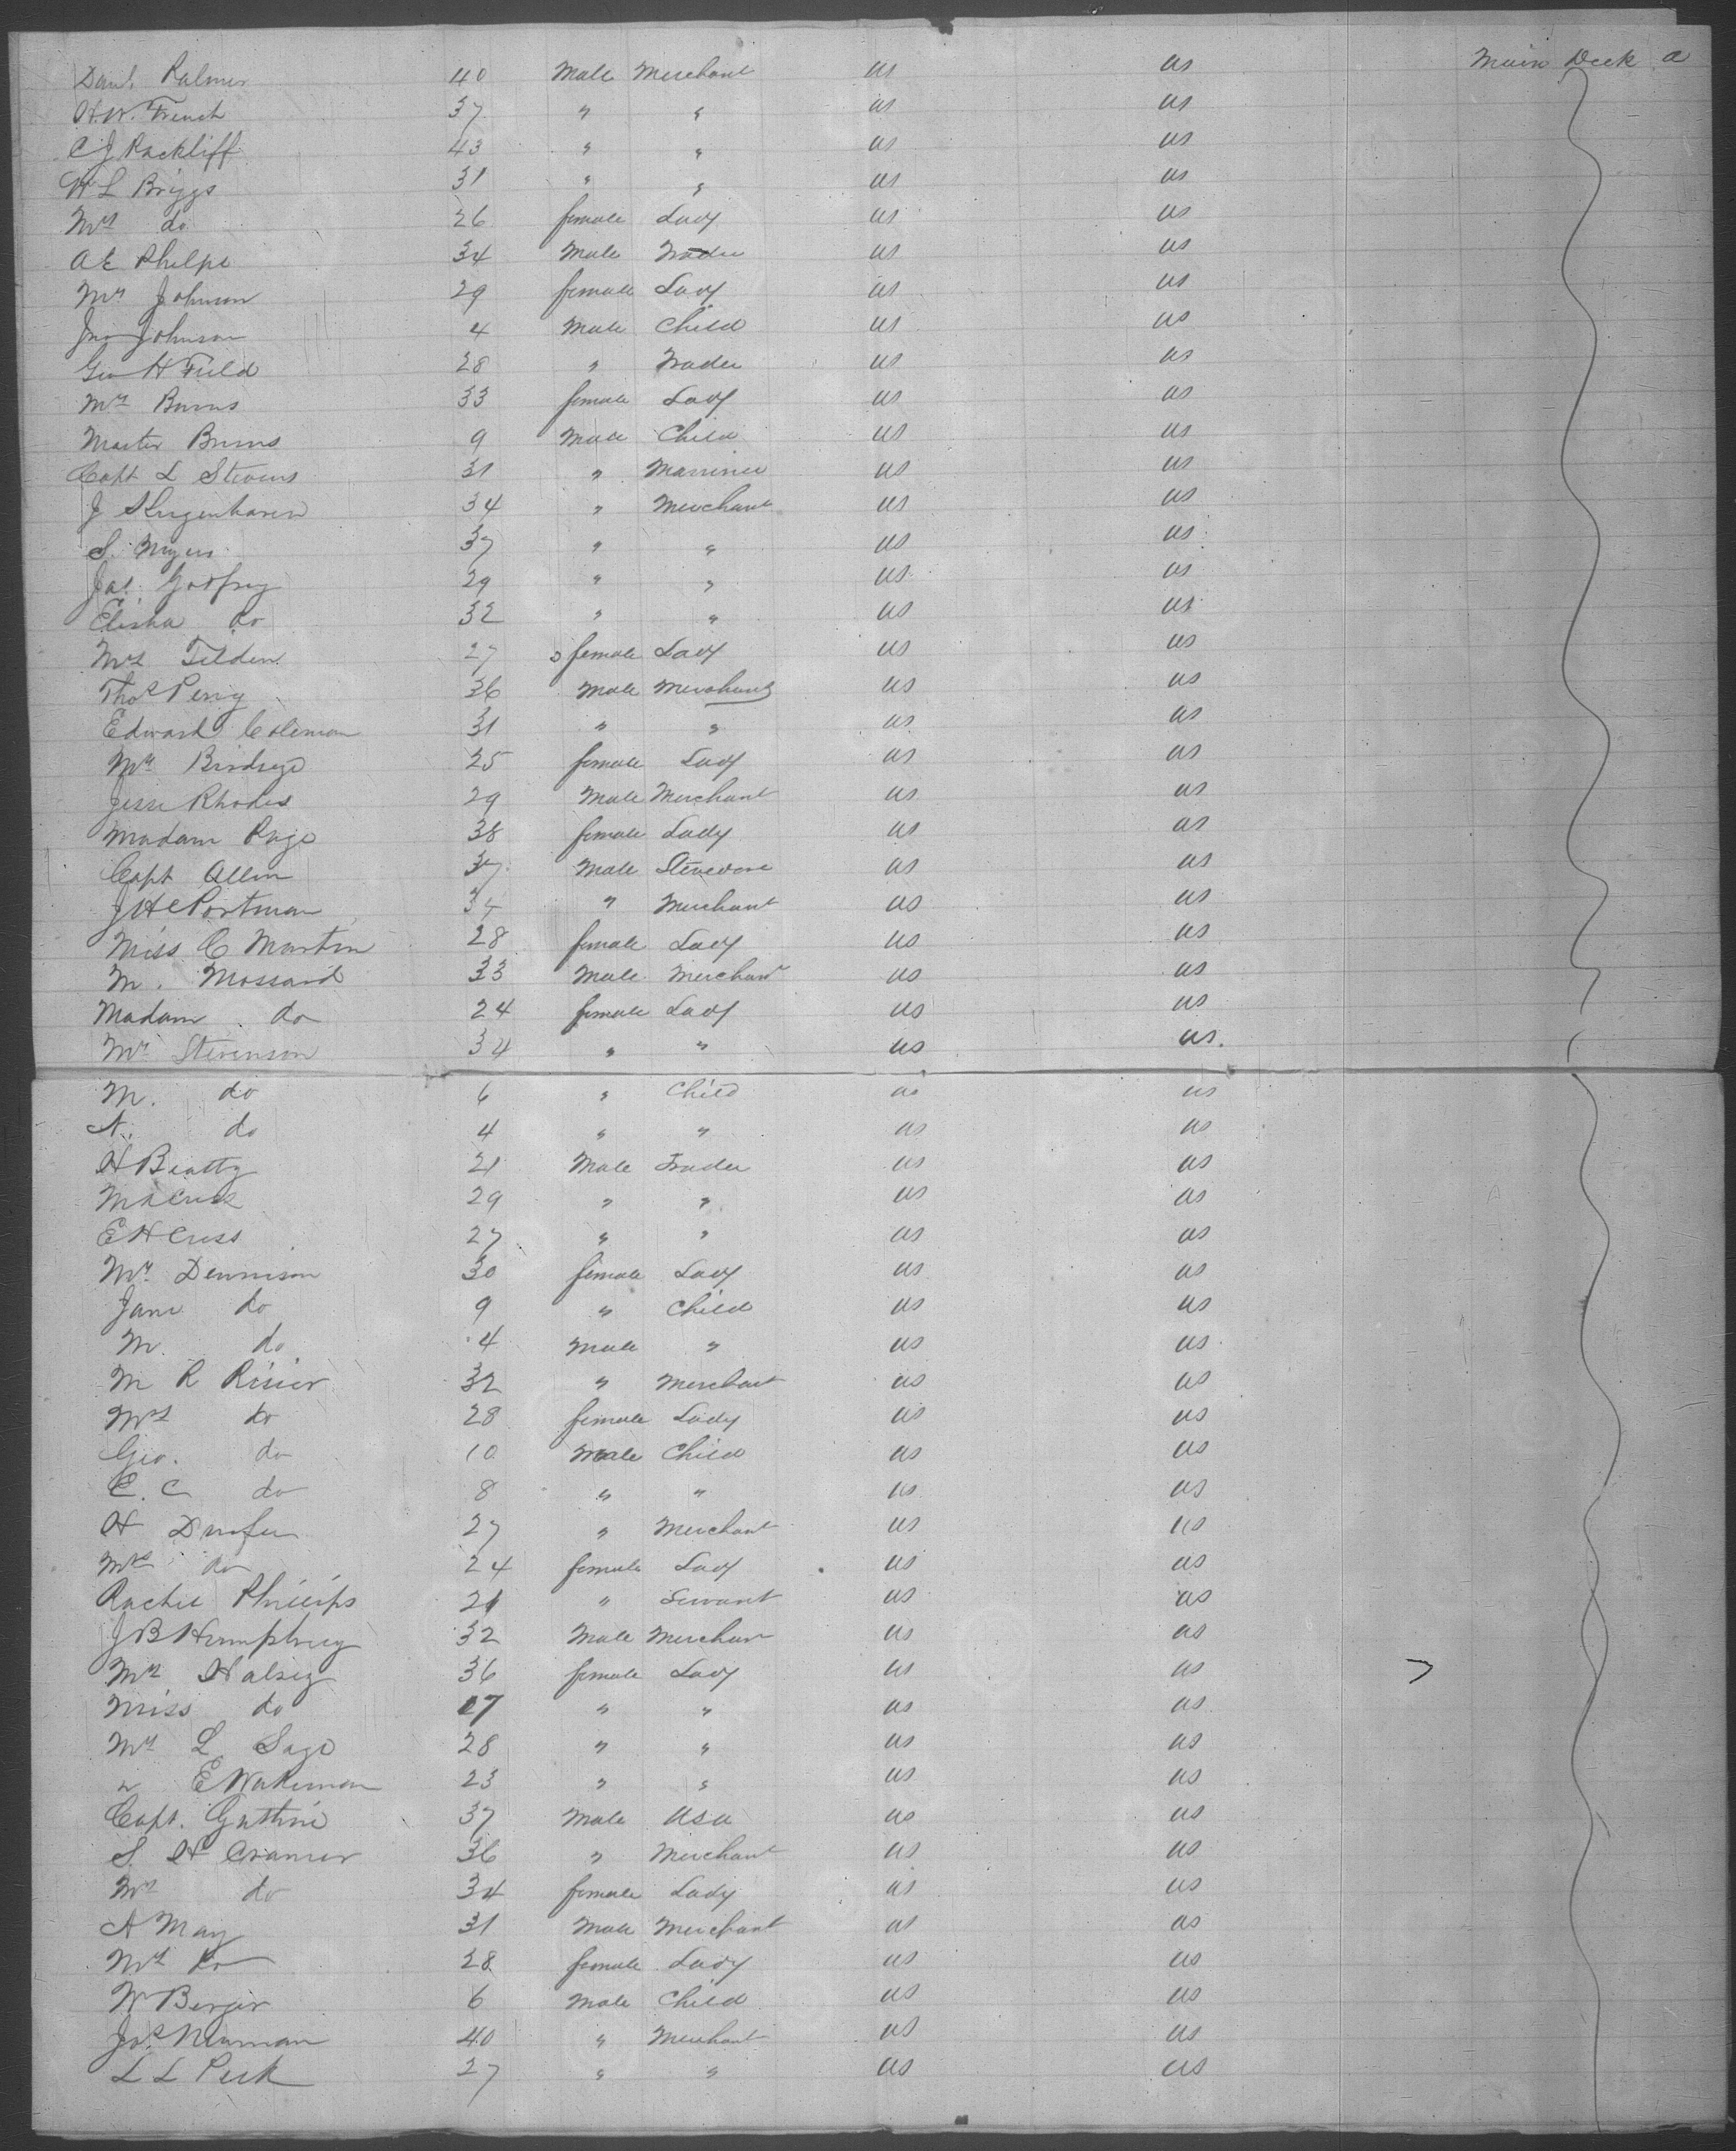 Danl. Palmer 40 Male Merchant us us Main Deck a
H.W. French 37 " " us us
C J Rackliff 43 " " us us
H L Briggs 31 " " us us
Mrs do 26 female Lady us us
A E Phelps 34 Male Trader us us
Mrs Johnson 29 female Lady us us
Jno Johnson 4 Male Child us us
Geo H Field 28 " Trader us us
Mrs Burns 33 female Lady us us
Master Burns 9 Male Child us us
Capt L Stevens 31 " Marriner us us
J 34 " Merchant us us
S. Myers 37 " " us us
Jas. Godfrey 29 " " us us
Elisha do 32 " " us us
Mrs Tilden 27 female Lady us us
Thos Perry 36 Male Merchant us us
Edward Coleman 31 " " us us
Mrs Birdseye 25 female Lady us us
Jesse Rhodes 29 Male Merchant us us
Madam Page 38 female Lady us us
Capt Allen 37 Male Stevedore us us
J H C Portman 34 " Merchant us us
Miss C Martin 28 female Lady us us
M. Mossard 33 Male Merchant us us
Madam do 24 female Lady us us
Mrs Stevenson 34 " " us us.
M. do 6 " Child us us
A. do 4 " " us us
H Beatty 21 Male Trader us us
29 " " us us
E H Cross 27 " " us us
Mrs Dennison 30 female Lady us us
Jane do 9 " Child us us
M. do 4 Male " us us
M R Risier 32 " Merchant us us
Mrs do 28 female Lady us us
Geo. do 10 Male Child us us
E. C do 8 " " us us
H 27 " Merchant us us
Mrs do 24 female Lady us us
Rachel Phillips 21 " Servant us us
J B Humphrey 32 Male Merchant us us
Mrs Halsey 36 female Lady us us
Miss do 17 " " us us
Mrs L Sage 28 " " us us
" E Wakeman 23 " " us us
Capt. Guthrie 37 Male USA us us
S. H Cramer 36 " Merchant us us
Mrs do 34 female Lady us us
A May 31 Male Merchant us us
Mrs do 28 female Lady us us
W Berger 6 Male Child us us
Jos. Newman 40 " Merchant us us
L L Peck 27 " " us us